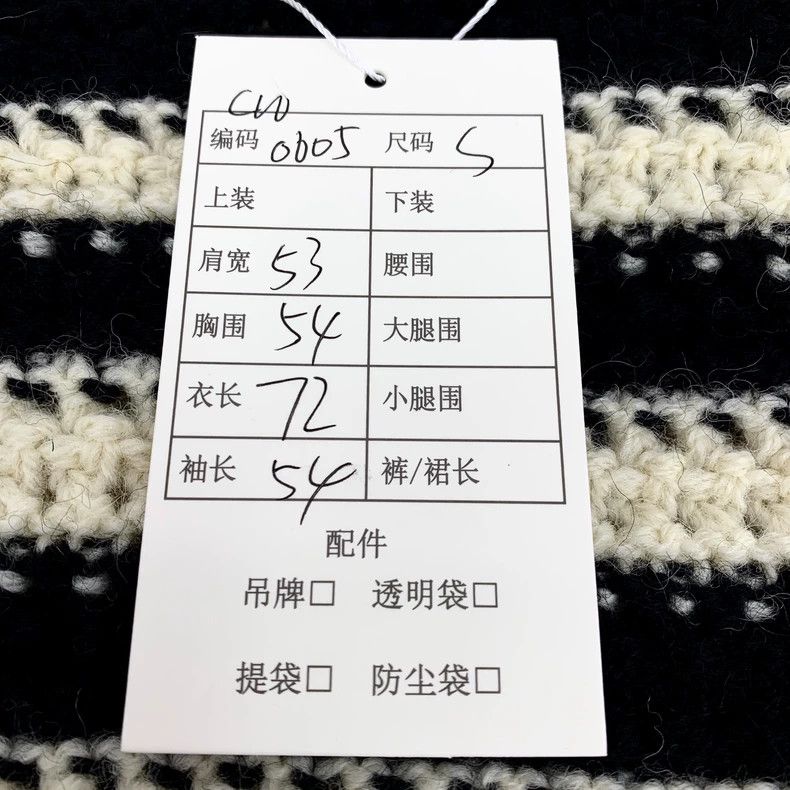 编码 0605 尺码 S
上装 下装
肩宽 53 腰围
胸围 54 大腿围
衣长 72 小腿围
袖长 54 裤/裙长
配件
吊牌□ 透明袋□
提袋□ 防尘袋□